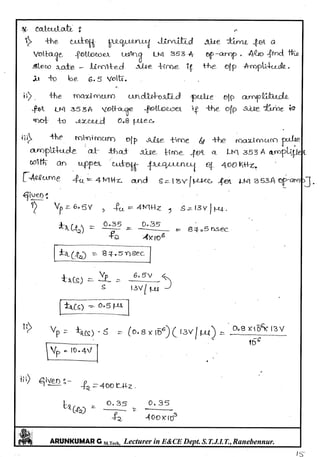 * calculate :
i) the cutoff frequency limited rise time for a
voltage follower using LM 353 A op-amp. Also find the
slew rate - limited rise time if the o/p Amplitude.
is to be 6.5 volts.
ii) the maximum undistorted pulse o/p amplitude
for LM 353A voltage follower if the o/p rise time is
not to exceed 0.8 μsec.
iii) the minimum o/p rise time & the maximum pulse
amplitude at that rise time for a LM 353 A amplifier
with an upper cutoff frequency of 400 KHz.
[Assume fu = 4MHz and S = 13V/μsec for LM 353A op-amp].
Given :
i) Vp = 6.5V , fu = 4MHz , S = 13V/μs.
tr(f2) = 0.35/f2 = 0.35/4×10⁶ = 87.5 nsec
tr(f2) = 87.5 nsec
tr(s) = Vp/S = 6.5V/13V/μs
tr(s) = 0.5 μs
ii) Vp = tr(s) · S = (0.8 × 10⁻⁶)(13V/μs) = 0.8 × 10⁻⁶ × 13V/10⁻⁶
Vp = 10.4V
iii) Given :- f2 = 400 KHz.
tr(f2) = 0.35/f2 = 0.35/400×10³
ARUNKUMAR G M.Tech, Lecturer in E&CE Dept. S.T.J.I.T., Ranebennur.
15